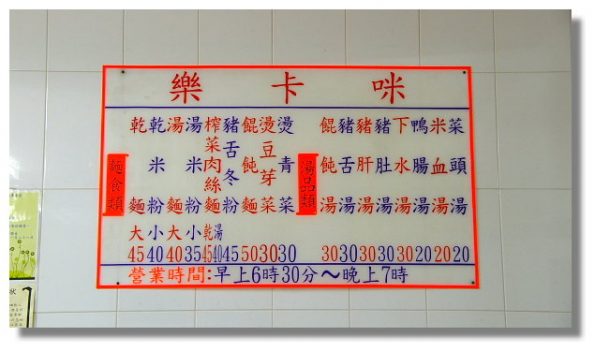 樂卡咪
麵食類
乾麵
乾米粉
湯麵
湯米粉
榨菜肉絲麵
豬舌冬粉
餛飩麵
燙豆芽菜
燙青菜
大 小 大 小 乾 湯
45 40 40 35 45 40 45 50 30 30
湯品類
餛飩湯
豬舌湯
豬肝湯
豬肚湯
下水湯
鴨腸湯
米血湯
菜頭湯
30 30 30 30 30 20 20 20
營業時間:早上6時30分～晚上7時